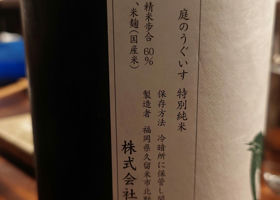 庭のうぐいす 特別純米
保存方法 冷暗所に保管し
製造者 福岡県久留米市北野
株式会社
精米歩合 60%
、米麹(国産米)